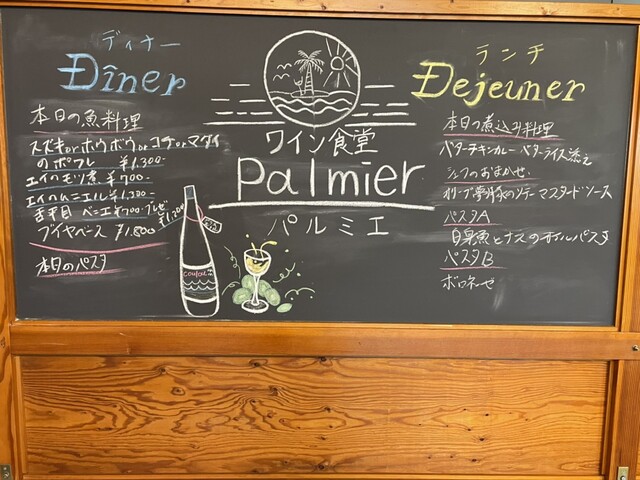 ディナー
Dîner
本日の魚料理
スズキorホウボウorコチorマダイ
のポワレ ¥1,300-
エイのモツ煮 ¥700-
エイのムニエル ¥1,300-
舌平目 ベニエ¥700・ブレゼ¥1,200
ブイヤベース ¥1,800
本日のパスタ
ワイン食堂
Palmier
パルミエ
ランチ
Dejeuner
本日の煮込み料理
バターチキンカレー バターライス添え
シェフのおまかせ
オリーブ夢豚のソテー マスタードソース
パスタA
白身魚とナスのオイルパスタ
パスタB
ボロネーゼ